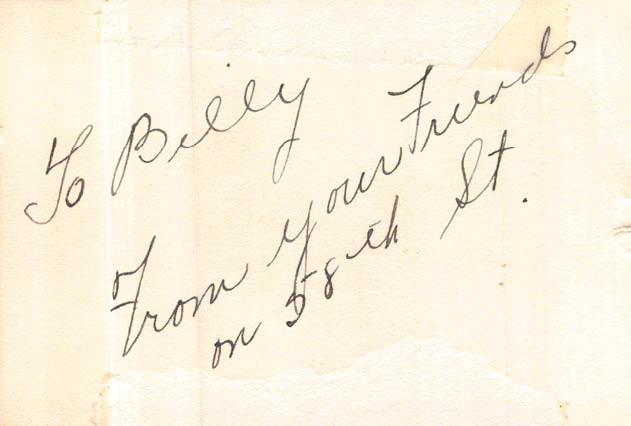 To Billy
From your Friends
on 58th St.